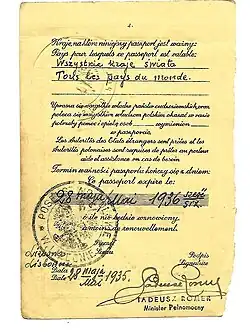 Kraje, na które niniejszy paszport jest ważny:
Pays pour lesquels ce passeport est valable:
Wszystkie kraje świata
Tous les pays du monde.
Uprasza się wszystkie władze państw cudzoziemskich, oraz
poleca się wszystkim władzom polskim okazać w razie
potrzeby pomoc i opiekę osob wymienion
w paszporcie.
Les Autorités des Etats étrangers sont priées et les
Autorités polonaises sont requises de prêter au porteur
aide et assistance en cas de besoin.
Termin ważności paszportu kończy się z dniem:
Ce passeport expire le:
28 maja Mai 1936 sześć six
o ile nie będzie wznowiony
à moins de renouvellement.
Podpis
Lisbonne
Data 28 maja 1935.
Mai
TADEUSZ ROMER
Minister Pełnomocny